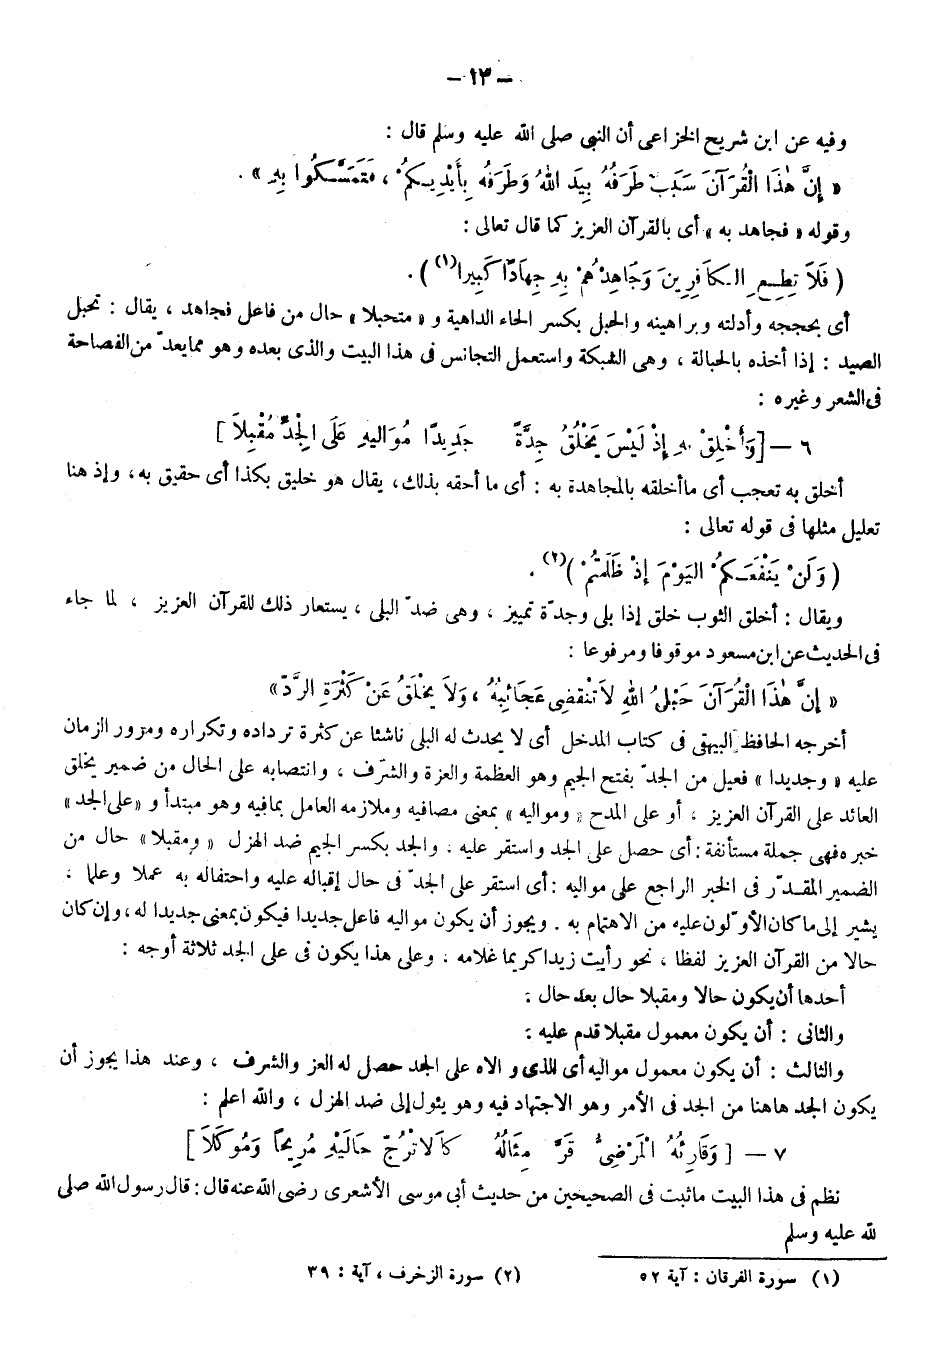 — ١٣ —
وفيه عن ابن شريح الخزاعى أن النبى صلى الله عليه وسلم قال :
« إِنَّ هٰذَا الْقُرْآنَ سَبَبٌ طَرَفُهُ بِيَدِ اللهِ وَطَرَفُهُ بِأَيْدِيكمُ ْ، فَتَمَسَّكُوا بِهِ » .
وقوله « فجاهد به » أى بالقرآن العزيز كما قال تعالى :
( فَلاَ تطِعِ الكاَفِرِينَ وَجَاهِدْهُمْ بِهِ جِهَادًا كَبِيرا(١) ) .
أى بحججه وأدلته وبراهينه والحبل بكسر الحاء الداهية و « متحبلا » حال من فاعل فجاهد ، يقال : تحبل
الصيد : إذا أخذه بالحبالة ، وهى الشبكة واستعمل التجانس فى هذا البيت والذى بعده وهو مما يعدّ من الفصاحة
فى الشعر وغيره :
٦ — [ وَأَخْلِقْ بهِ إِذْ لَيْسَ يَخْلُقُ جِدَّةً جَدِيدًا مُوَالِيهِ عَلَى الْجِدِّ مُقْبِلاَ ]
أخلق به تعجب أى ما أخلقه بالمجاهدة به : أى ما أحقه بذلك ، يقال هو خليق بكذا أى حقيق به ، وإذ هنا
تعليل مثلها فى قوله تعالى :
( وَلَنْ يَنْفَعَكمُ ْ اليَوْمَ إِذْ ظَلَمْتُمْ )(٢) .
ويقال : أخلق الثوب خلق إذا بلى وجدّة تمييز ، وهى ضدّ البلى ، يستعار ذلك للقرآن العزيز ، لما جاء
فى الحديث عن ابن مسعود موقوفا ومرفوعا :
« إِنَّ هٰذَا الْقُرْآنَ حَبْلُ اللهِ لاَ تنْقضِى عَجَائِبُهُ ، وَلاَ يخْلَقُ عَنْ كَثْرَةِ الرَّدّ »
أخرجه الحافظ البيهقى فى كتاب المدخل أى لا يحدث له البلى ناشئا عن كثرة ترداده وتكراره ومرور الزمان
عليه « وجديدا » فعيل من الجدّ بفتح الجيم وهو العظمة والعزة والشرّف ، وانتصابه على الحال من ضمير يخلق
العائد على القرآن العزيز ، أو على المدح « ومواليه » بمعنى مصافيه وملازمه العامل بمافيه وهو مبتدأ و « على الجد »
خبره فهى جملة مستأنفة : أى حصل على الجد واستقر عليه ، والجد بكسر الجيم ضد الهزل « ومقبلا » حال من
الضمير المقدّر فى الخبر الراجع على مواليه : أى استقر على الجدّ فى حال إقباله عليه واحتفاله به عملا وعلما ،
يشير إلى ما كان الأوّلون عليه من الاهتمام به . ويجوز أن يكون مواليه فاعل جديدا فيكون بمعنى جديدا له ، وإن كان
حالا من القرآن العزيز لفظا ، نحو رأيت زيدا كريما غلامه ، وعلى هذا يكون فى على الجد ثلاثة أوجه :
أحدها أن يكون حالا ومقبلا حال بعد حال :
والثانى : أن يكون معمول مقبلا قدم عليه :
والثالث : أن يكون معمول مواليه أى الذى والاه على الجد حصل له العز والشرف ، وعند هذا يجوز أن
يكون الجد هاهنا من الجد فى الأمر وهو الاجتهاد فيه وهو يئول إلى ضد الهزل ، والله اعلم :
٧ — [ وَقَارِئُهُ الْمَرْضِىُّ قَرَّ مِثَالُهُ كاَلاتْرُجّ حَالَيْهِ مُرِيحًا وَمُوكَلاَ ]
نظم فى هذا البيت ماثبت فى الصحيحين من حديث أبى موسى الأشعرى رضى الله عنه قال : قال رسول الله صلى
لله عليه وسلم
(١) سورة الفرقان : آية ٥٢ (٢) سورة الزخرف ، آية : ٣٩